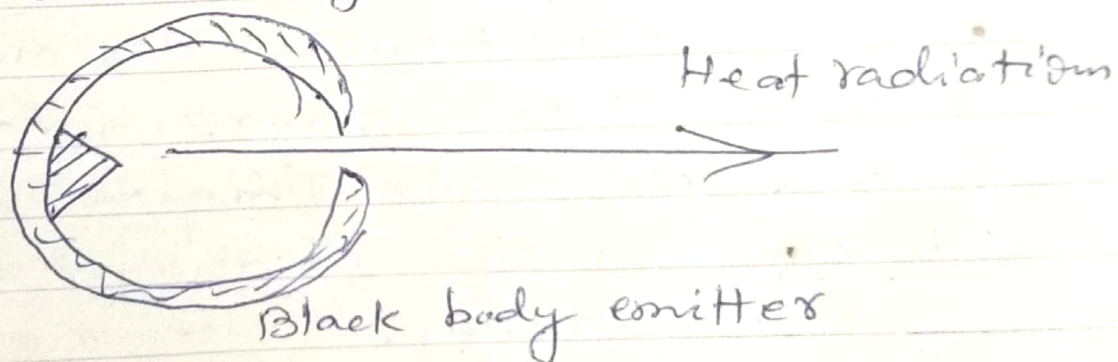 Heat radiation
Black body emitter